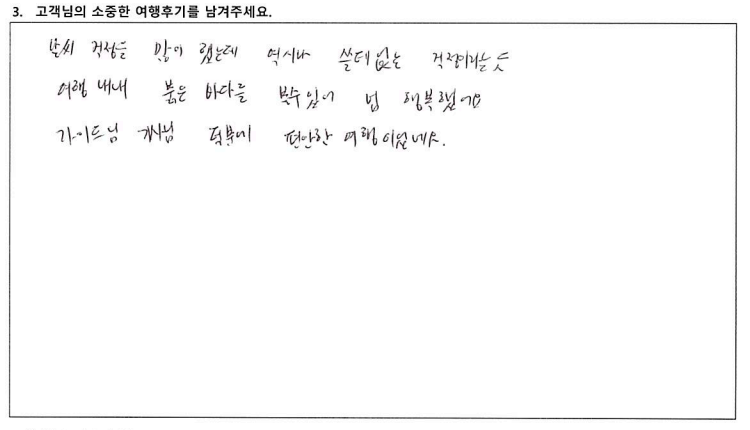 3. 고객님의 소중한 여행후기를 남겨주세요.
날씨 걱정을 많이 했는데 역시나 쓸데없는 걱정이라는 듯
여행 내내 붉은 바다를 볼수있어 넘 행복했어요
가이드님 기사님 덕분에 편안한 여행이었네요.